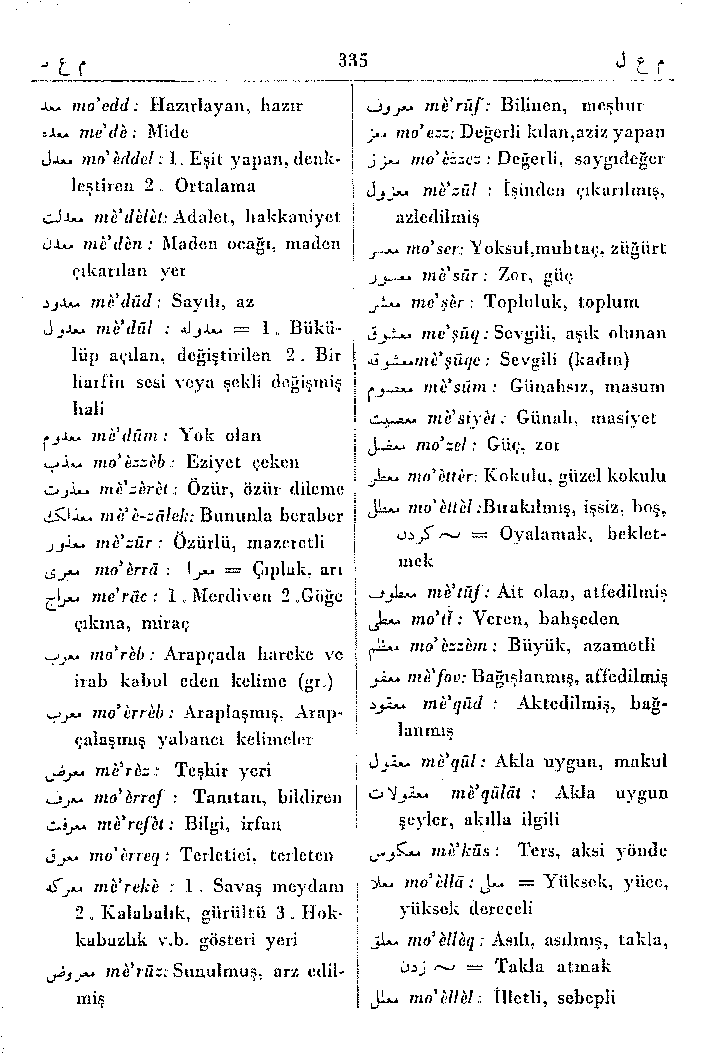 م ع د
335
م ع ل
معد mo'edd: Hazırlayan, hazır
معده me'dè: Mide
معدل mo'èddel: 1. Eşit yapan, denk-
leştiren 2. Ortalama
معدلت mè'dèlèt: Adalet, hakkaniyet
معدن mè'dèn: Maden ocağı, maden
çıkarılan yer
معدود mè'dūd: Sayılı, az
معدول mè'dūl : معدوله = 1. Bükü-
lüp açılan, değiştirilen 2. Bir
harfin sesi veya şekli değişmiş
hali
معدوم mè'dūm: Yok olan
معذب mo'èzzèb: Eziyet çeken
معذرت mè'zèrèt: Özür, özür dileme
معذالك mè'è-zālek: Bununla beraber
معذور mè'zūr: Özürlü, mazeretli
معری mo'èrrā : معرا = Çıplak, arı
معراج me'rāc: 1. Merdiven 2. Göğe
çıkma, miraç
معرب mo'rèb: Arapçada hareke ve
irab kabul eden kelime (gr.)
معرب mo'èrrèb: Araplaşmış, Arap-
çalaşmış yabancı kelimeler
معرض mè'rèz: Teşhir yeri
معرف mo'èrref : Tanıtan, bildiren
معرفت mè'refèt: Bilgi, irfan
معرق mo'èrreq: Terletici, terleten
معرکه mè'rekè : 1. Savaş meydanı
2. Kalabalık, gürültü 3. Hok-
kabazlık v.b. gösteri yeri
معروض mè'rūz: Sunulmuş, arz edil-
miş
معروف mè'rūf: Bilinen, meşhur
معز mo'ezz: Değerli kılan, aziz yapan
معزز mo'èzzez : Değerli, saygıdeğer
معزول mè'zūl : İşinden çıkarılmış,
azledilmiş
معسر mo'ser: Yoksul, muhtaç, züğürt
معسور mè'sūr: Zor, güç
معشر me'şèr : Topluluk, toplum
معشوق me'şūq: Sevgili, aşık olunan
معشوقه mè'şūqe: Sevgili (kadın)
معصوم mè'sūm: Günahsız, masum
معصیت mè'siyèt: Günah, masiyet
معضل mo'zel: Güç, zor
معطر mo'èttèr: Kokulu, güzel kokulu
معطل mo'èttèl: Bırakılmış, işsiz, boş,
کردن ~ = Oyalamak, beklet-
mek
معطوف mè'tūf: Ait olan, atfedilmiş
معطی mo'tī: Veren, bahşeden
معظم mo'èzzèm: Büyük, azametli
معفو mè'fov: Bağışlanmış, affedilmiş
معقود mè'qūd : Aktedilmiş, bağ-
lanmış
معقول mè'qūl: Akla uygun, makul
معقولات mè'qūlāt : Akla uygun
şeyler, akılla ilgili
معکوس mè'kūs: Ters, aksi yönde
معلا mo'èllā: معلی = Yüksek, yüce,
yüksek dereceli
معلق mo'èllèq: Asılı, asılmış, takla,
زدن ~ = Takla atmak
معلل mo'èllèl: İlletli, sebepli